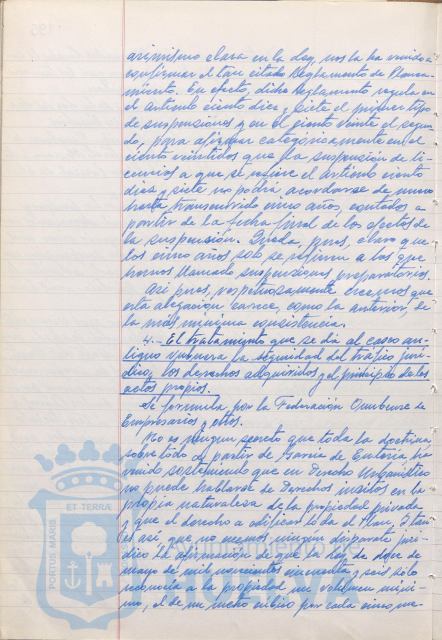 asimismo clara en la Ley, nos la ha venido a
confirmar el tan citado Reglamento de Planea-
miento. En efecto, dicho Reglamento regula en
el artículo ciento diez y siete el primer tipo
de suspensiones y en el ciento veinte el segun
do, para afirmar categóricamente en el
ciento veintidos que "la suspensión de li-
cencias a que se refiere el artículo ciento
diez y siete no podrá acordarse de nuevo
hasta transcurrido cinco años, contados a
partir de la fecha final de los efectos de
la suspensión. Queda, pues, claro que
los cinco años solo se refieren a las que
hemos llamado suspensiones preparatorias.
Así pues, respetuosamente creemos que
esta alegación carece, como la anterior, de
la más mínima consistencia.
4.- El tratamiento que se dá al casco an-
tiguo vulnera la seguridad del tráfico jurí-
dico, los derechos adquiridos y el principio de los
actos propios.
Se formula por la Federación Onubense de
Empresarios y otros.
No es ningun secreto que toda la doctrina
sobre todo a partir de García de Enterría ha
venido sosteniendo que en Derecho Urbanístico
no puede hablarse de Derechos insitos en la
propia naturaleza de la propiedad privada
y que el derecho a edificar lo da el Plan,
es así que no menos ningun disparate jurí-
dico la afirmación de que la Ley de doce de
mayo de mil novecientos cincuenta y seis sólo
reconocía a la propiedad un volumen míni-
mo, el de un metro cúbico por cada cinco me-
PORTUS MARIS
ET TERRAE